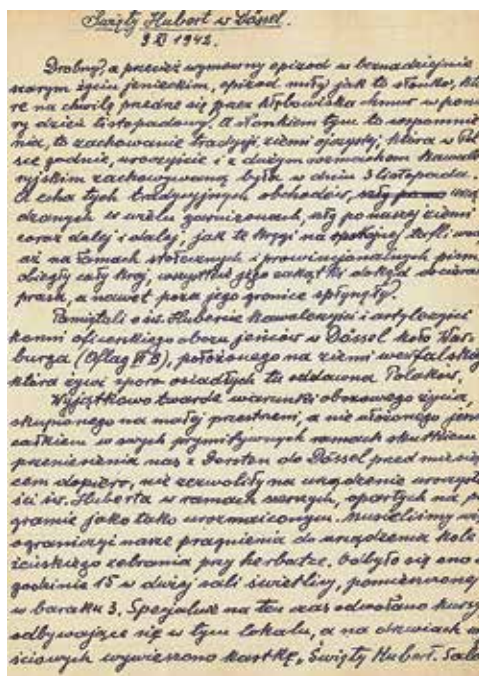 Święty Hubert w Dössel.
3 XI 1942.
Drobny, a przecież wymowny epizod w beznadziejnie
szarym życiu jenieckim, epizod miły jak to słonko, któ
re na chwilę przedrze się przez kłębowiska chmur w ponu
ry dzień listopadowy. A słonkiem tym to wspomnie
nia, to zachowanie tradycji ziemi ojczystej, która w Pol
sce godnie, uroczyście i z dużym rozmachem kawale
ryjskim zachowywaną była w dniu 3 listopada.
A echa tych tradycyjnych obchodów, urzą
dzanych w wielu garnizonach, szły po naszej ziemi
coraz dalej i dalej, jak te kręgi na spokojnej tafli wod
aż na łamach stołecznych i prowincjonalnych pism
obiegły cały kraj, wszystkie jego zakątki dokąd dociera
prasa, a nawet poza jego granice spłynęły.
Pamiętali o św. Hubercie kawalerzyści i artylerzyści
konni oficerskiego obozu jeńców w Dössel koło War
burga (Oflag VI B), położonego na ziemi westfalskiej
która żywi sporo osiadłych tu oddawna Polaków.
Wyjątkowo twarde warunki obozowego życia,
skupionego na małej przestrzeni, a nie ułożonego jesz
całkiem w swych prymitywnych ramach skutkiem
przeniesienia nas z Dorsten do Dössel przed miesią
cem dopiero, nie zezwoliły na urządzenie uroczysto
ści św. Huberta w ramach szerszych, opartych na pro
gramie jako tako urozmaiconym. Musieliśmy wię
ograniczyć nasze pragnienia do urządzenia kole
żeńskiego zebrania przy herbatce. Odbyło się ono o
godzinie 15 w dużej sali świetlicy, pomieszczonej
w baraku 3. Specjalnie na ten czas odwołano kursy
odbywające się w tym lokalu, a na drzwiach we
jściowych wywieszono kartkę „Święty Hubert. Sala